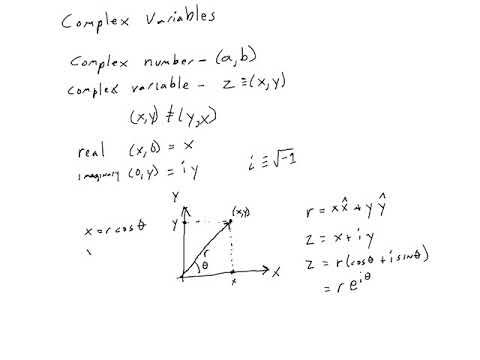 Complex Variables
Complex number - (a,b)
complex variable - z ≡ (x,y)
(x,y) ≠ (y,x)
real (x,0) = x
imaginary (0,y) = iy
i ≡ √-1
x = r cosθ
Y
y
(x,y)
r
θ
x
X
r = x x̂ + y ŷ
z = x + iy
z = r(cosθ + i sinθ)
= r e^{iθ}